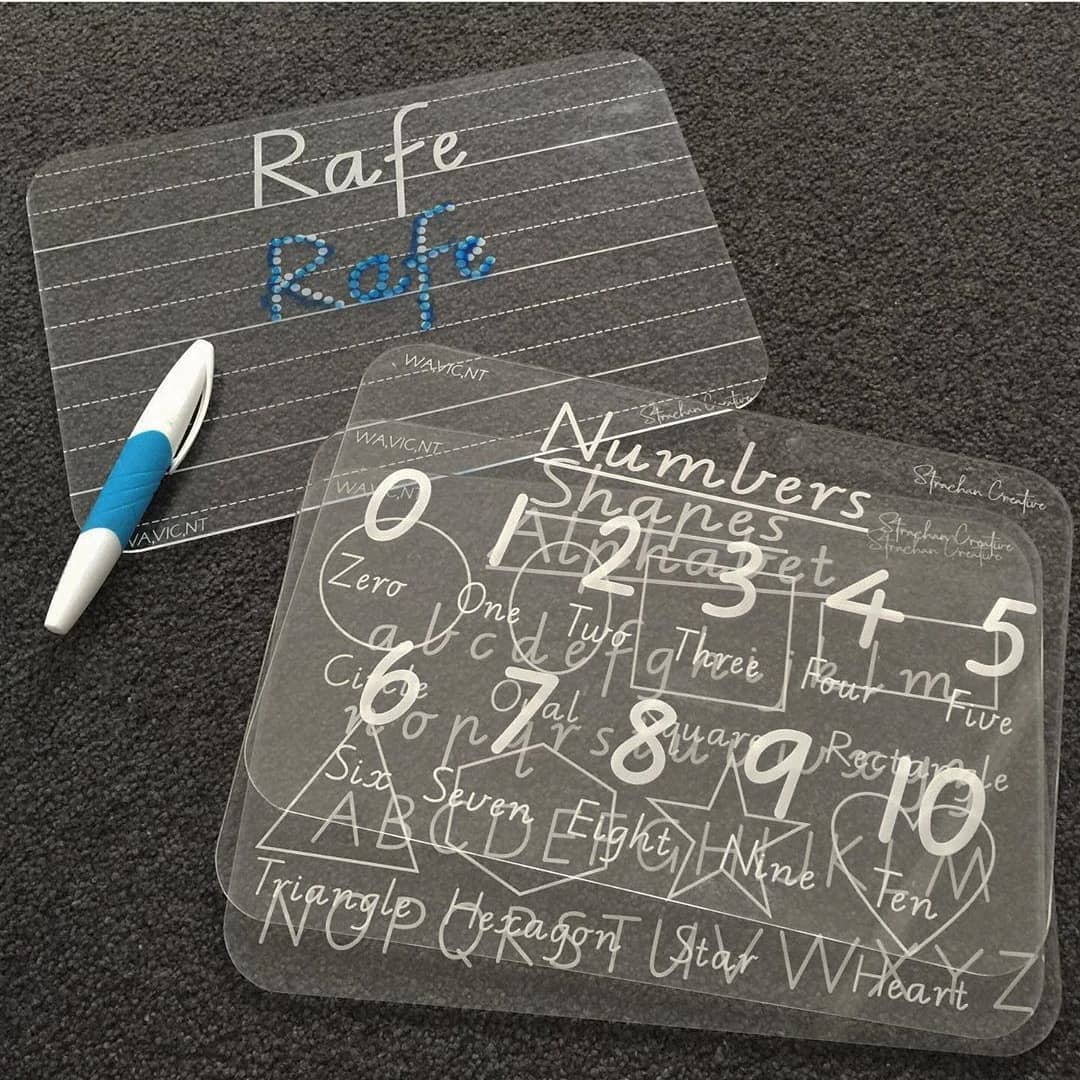 Rafe
Rafe
Strachan Creative
WA,VIC,NT
WA,VIC,NT
Numbers
Strachan Creative
0 1 2 3 4 5
Zero One Two Three Four Five
6 7 8 9 10
Six Seven Eight Nine Ten
WA,VIC,NT
Shapes
Strachan Creative
Circle Oval Square Rectangle
Triangle Hexagon Star Heart
WA,VIC,NT
Alphabet
Strachan Creative
a b c d e f g h i j k l m
n o p q r s t u v w x y z
A B C D E F G H I J K L M
N O P Q R S T U V W X Y Z